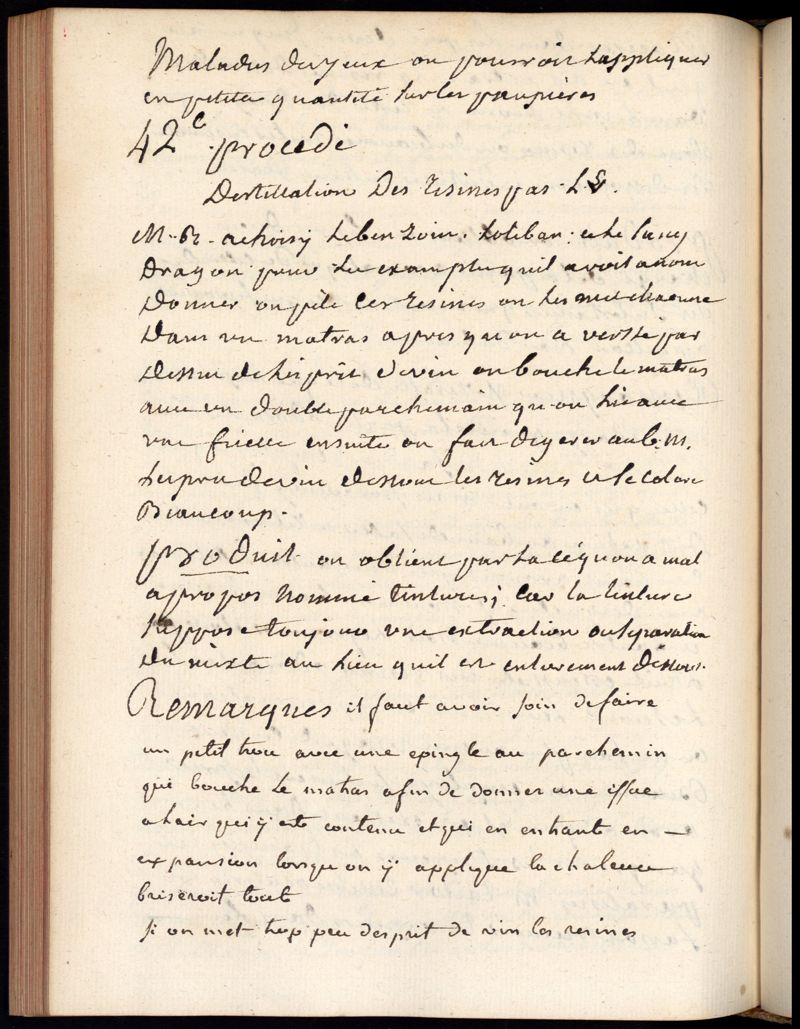 Maladies des yeux on pourroit Lappliquer
en petite quantité sur les paupieres
42e procedé
Destillation Des resines par L
M. R. a choisy Le benzoin. Le toleban. et Le sang
Dragon pour Les examples quil avoit a nous
Donner on pile ces resines on les met chacune
Dans un matras apres qu on a versse par
Dessus de Lesprit de vin on bouche le matras
avec un double parchemain qu on Lie avec
une ficelle ensuite on fait digerer au b. m.
Lesprit de vin dissout les resines et se colore
Beaucoup.
produit on obtient par La ce qu on a mal
a propos Nommé tintures; car la tinture
suppose toujour une extraction ou separation
Du mixte au Lieu quil est entierement dissous.
Remarques il faut avoir soin de faire
un petit trou avec une epingle au parchemin
qui bouche Le matras afin de donner une issue
a lair qui y est contenu et qui en entrant en —
expansion lorsqu on y applique la chaleur
briseroit tout
si on met trop peu desprit de vin les resines